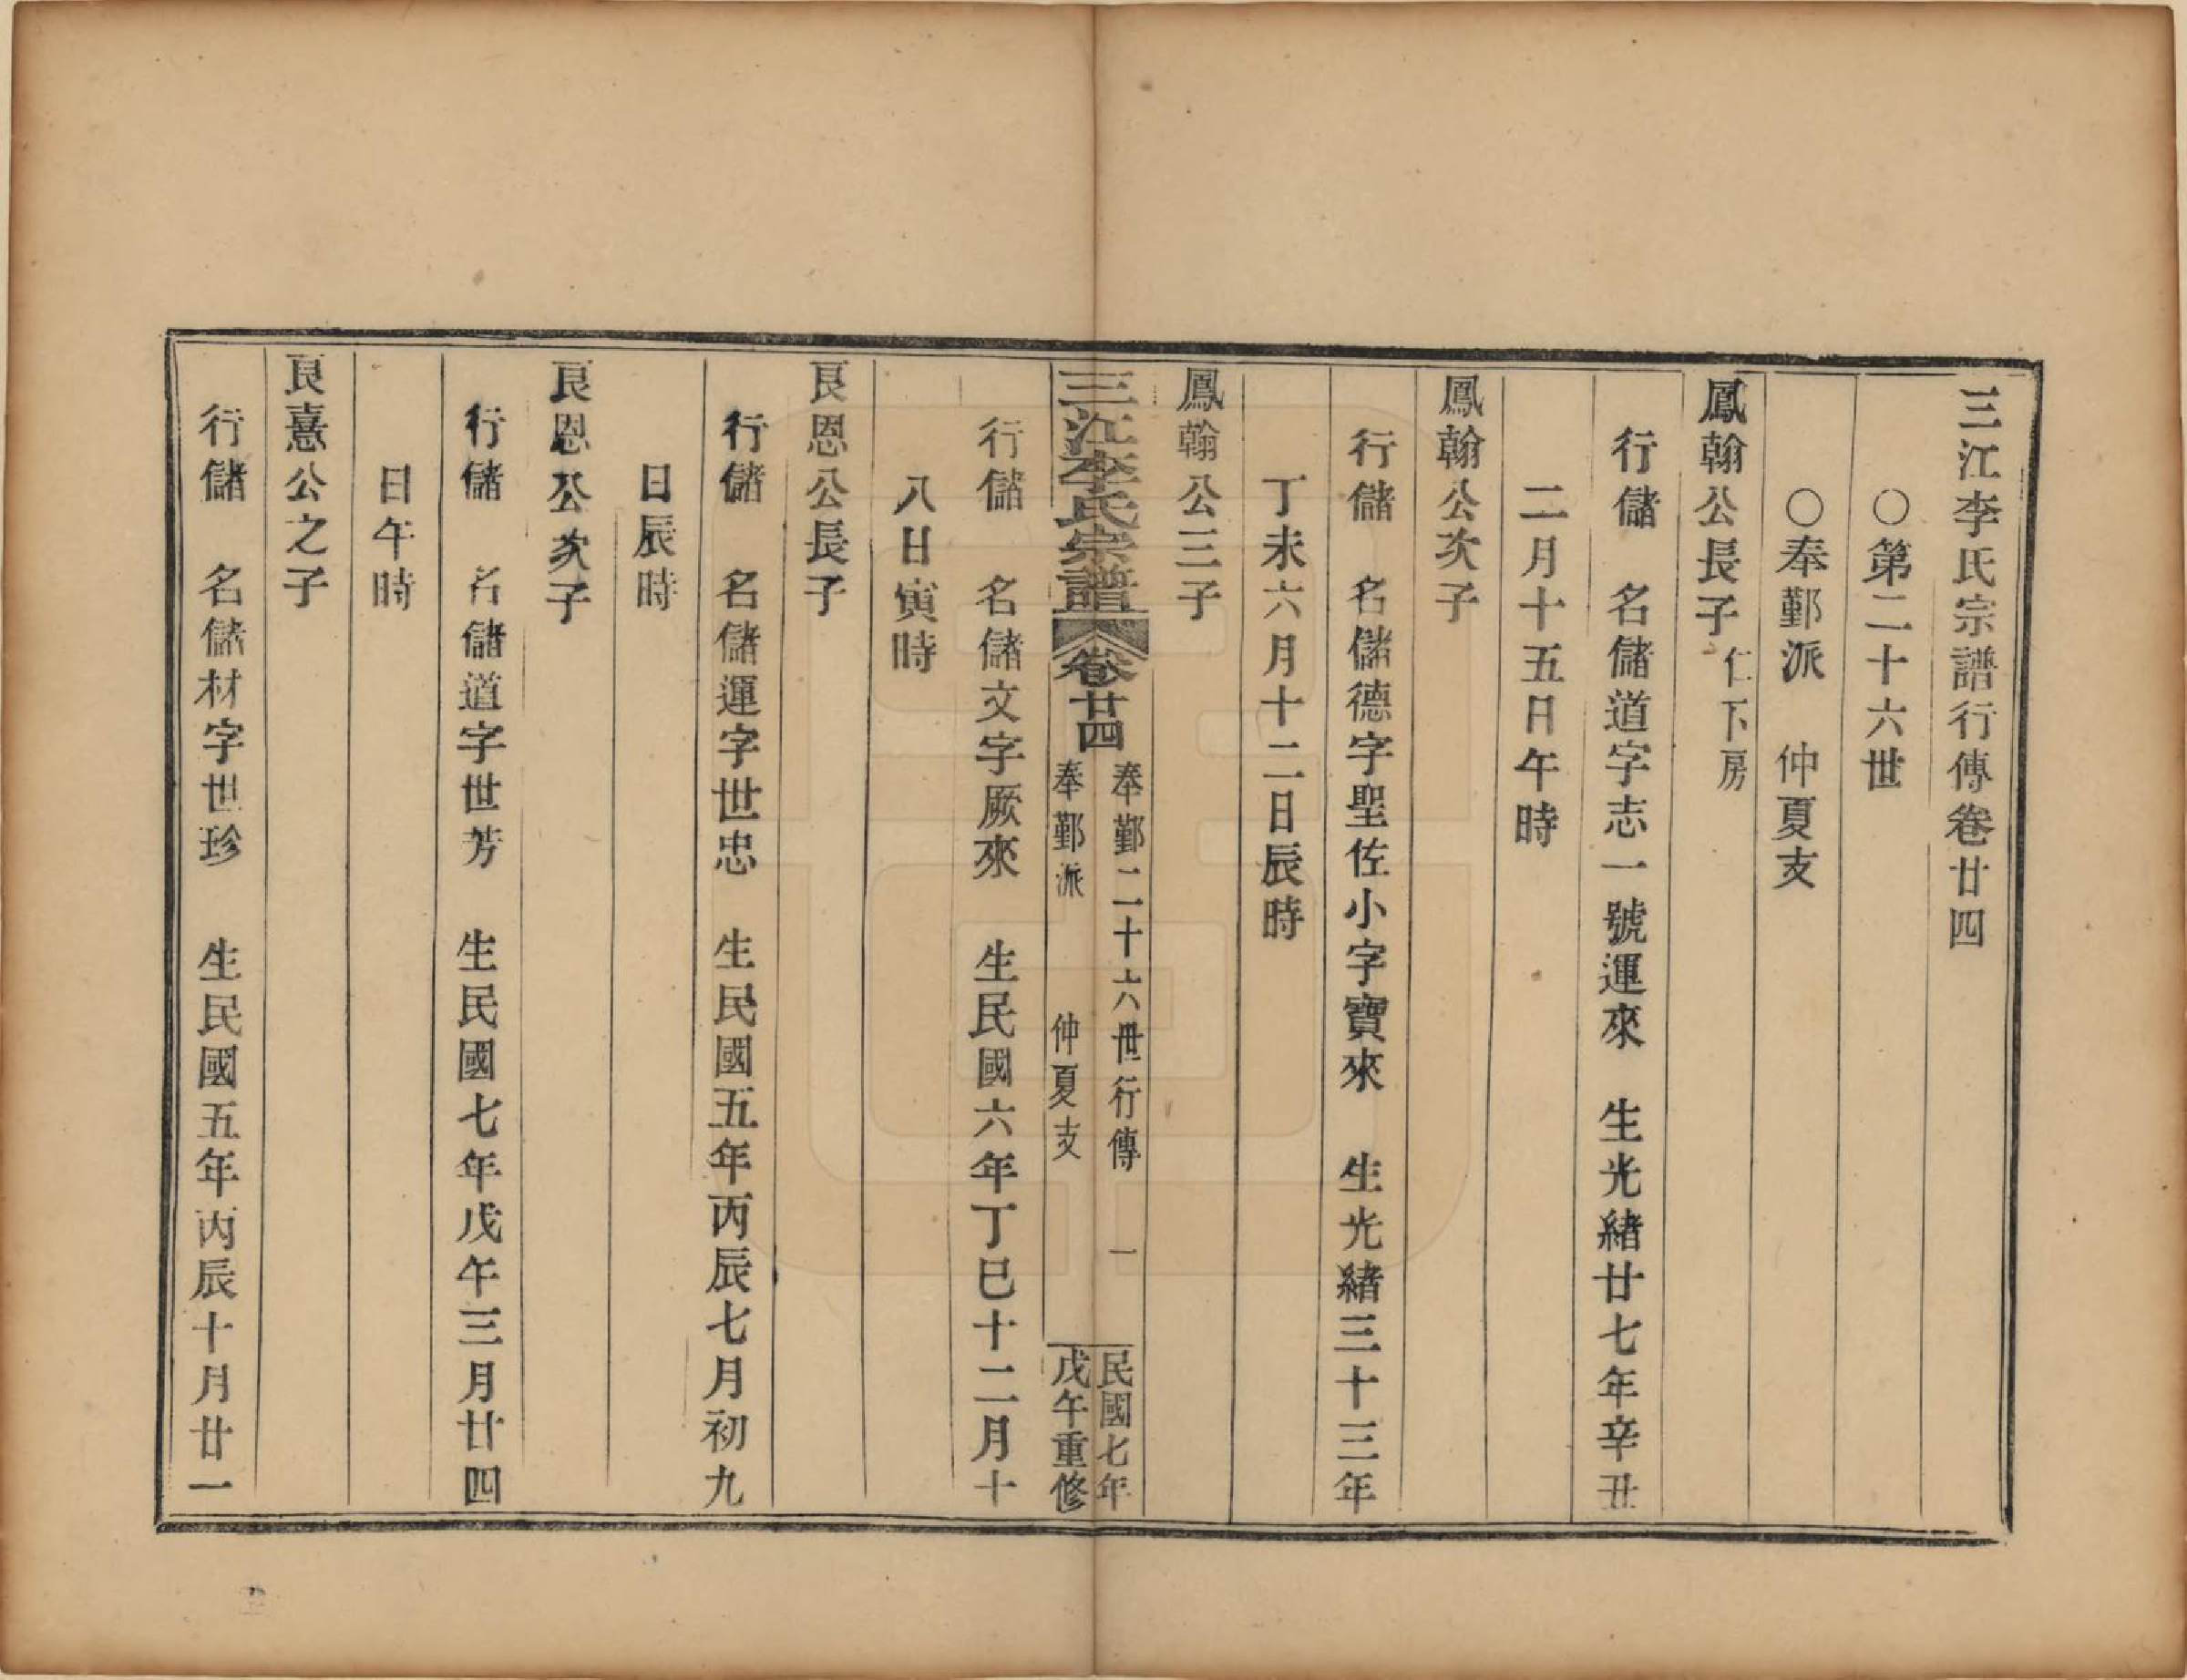 三江李氏宗譜行傳卷廿四
○第二十六世
○奉鄞派　仲夏支
鳳翰公長子 仁下房
行儲　名儲道字志一號運來　生光緒廿七年辛丑
二月十五日午時
鳳翰公次子
行儲　名儲德字聖佐小字寶來　生光緒三十三年
丁未六月十二日辰時
鳳翰公三子
三江李氏宗譜 卷廿四
奉鄞二十六世行傳　一
奉鄞派　仲夏支
民國七年
戊午重修
行儲　名儲文字厥來　生民國六年丁巳十二月十
八日寅時
良恩公長子
行儲　名儲運字世忠　生民國五年丙辰七月初九
日辰時
良恩公次子
行儲　名儲道字世芳　生民國七年戊午三月廿四
日午時
良憙公之子
行儲　名儲材字世珍　生民國五年丙辰十月廿一